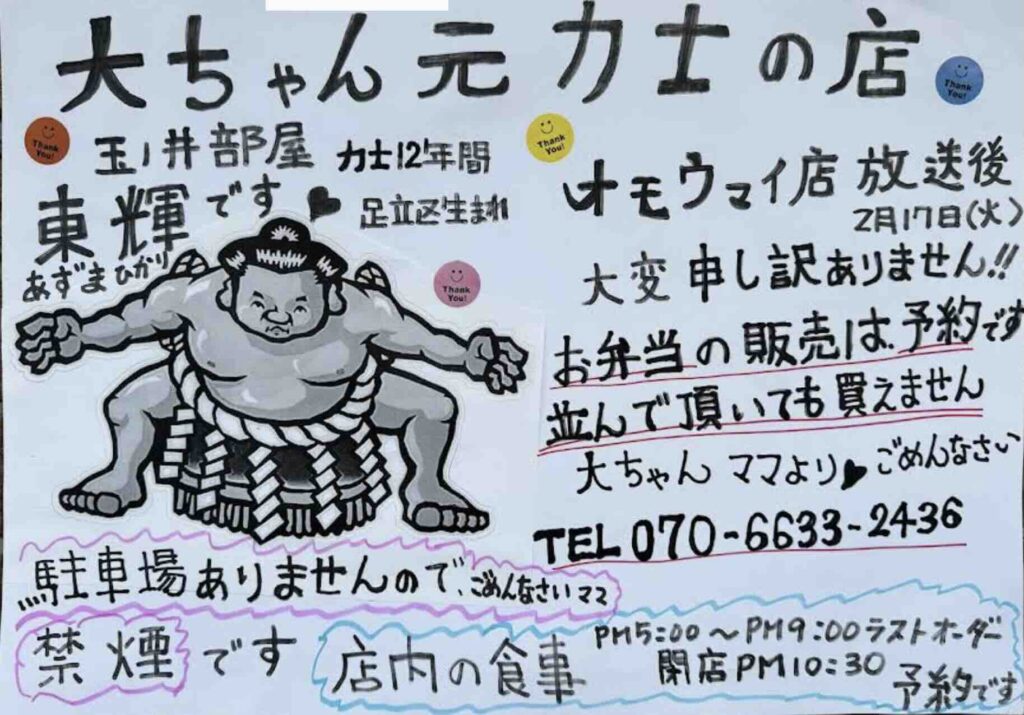 大ちゃん元力士の店
Thank You!
Thank You!
Thank You!
玉ノ井部屋 力士12年間
東輝です♥足立区生まれ
あずまひかり
Thank You!
オモウマイ店 放送後
2月17日(火)
大変申し訳ありません!!
お弁当の販売は、予約です
並んで頂いても買えません
大ちゃん ママより♥ごめんなさい
TEL 070-6633-2436
駐車場ありませんので、ごめんなさいママ
禁煙です
店内の食事
PM5:00〜PM9:00ラストオーダー
閉店PM10:30
予約です